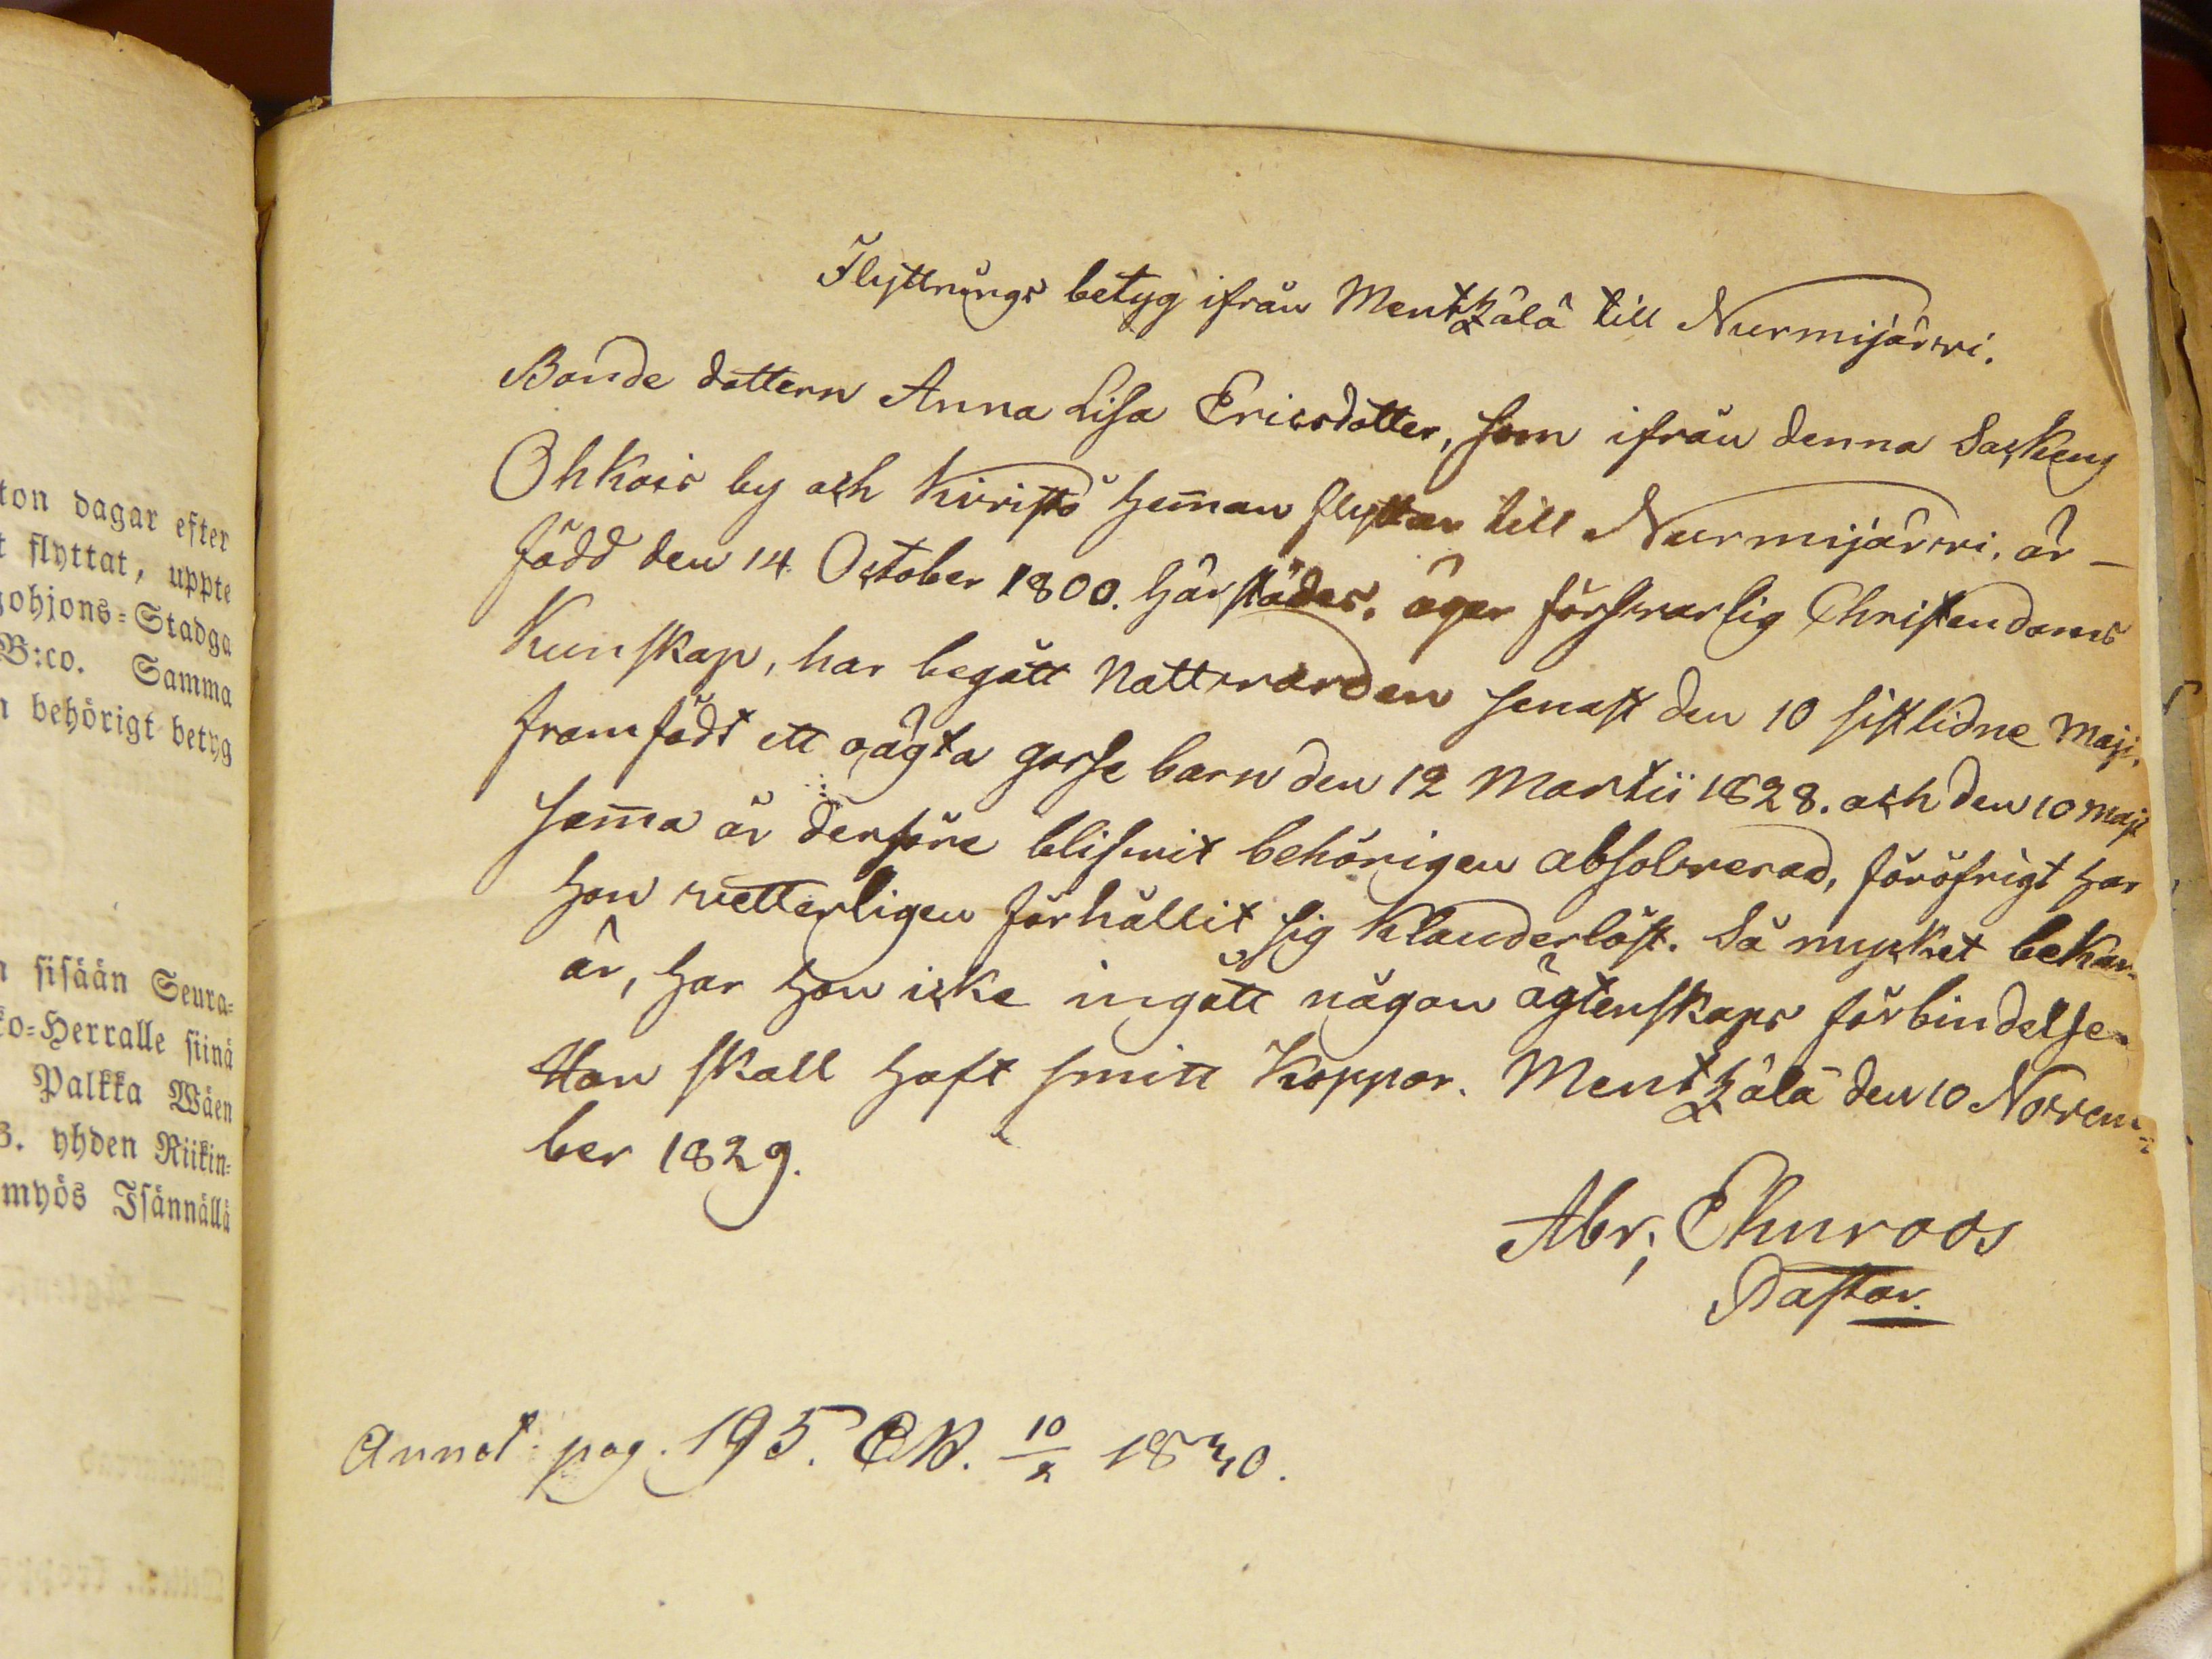 ton dagar efter
t flyttat, uppte
gohjons-Stadga
B:co. Samma
n behörigt betyg
n sisään Seura-
ko-Herralle siinä
Palkka Wäen
B. yhden Riikin-
myös Isännällä
Flyttnings betyg ifrån Mentzälä till Nurmijärwi.
Bonde dottern Anna Lisa Ericsdotter, som ifrån denna Socken
Ohkois by och Kiristö Hem̄an flyttar till Nurmijärwi, är –
född den 14 October 1800. härstädes, äger förswarlig Christendoms
Kunskap, har begått Nattwarden senast den 10 sistlidne Maji,
framfödt ett oägta gosse barn den 12 Martii 1828. och den 10 Maji
sam̄a år derföre blifwit behörigen absolverad, föröfrigt har
hon wetterligen förhållit sig klanderlöst. Så mycket bekan-
är, har hon icke ingått någon ägtenskaps förbindelse.
Hon skall haft smitt Koppor. Mentzälä den 10 Novem-
ber 1829.
Abr; Ehnroos
Pastor.
Annot: pag. 195. 10/2 1830.